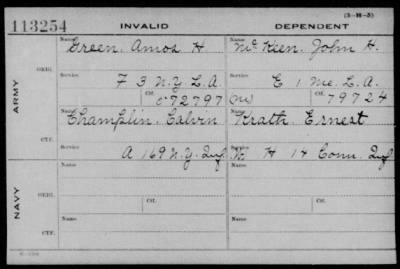 (3-H-5)
113254 INVALID DEPENDENT
ARMY
ORIG.
Name Green. Amos H.
Name McKeen, John H.
Service F 3 N.Y. L.A.
Service E 1 Me. L.A.
Ctf. 572797
(M) Ctf. 79724
CTF.
Name Champlin. Calvin
Name Krath Ernest
Service A 169 N.Y. Inf.
Service H 14 Conn. Inf.
NAVY
ORIG.
Name
Name
Service
Service
Ctf.
Ctf.
CTF.
Name
Name